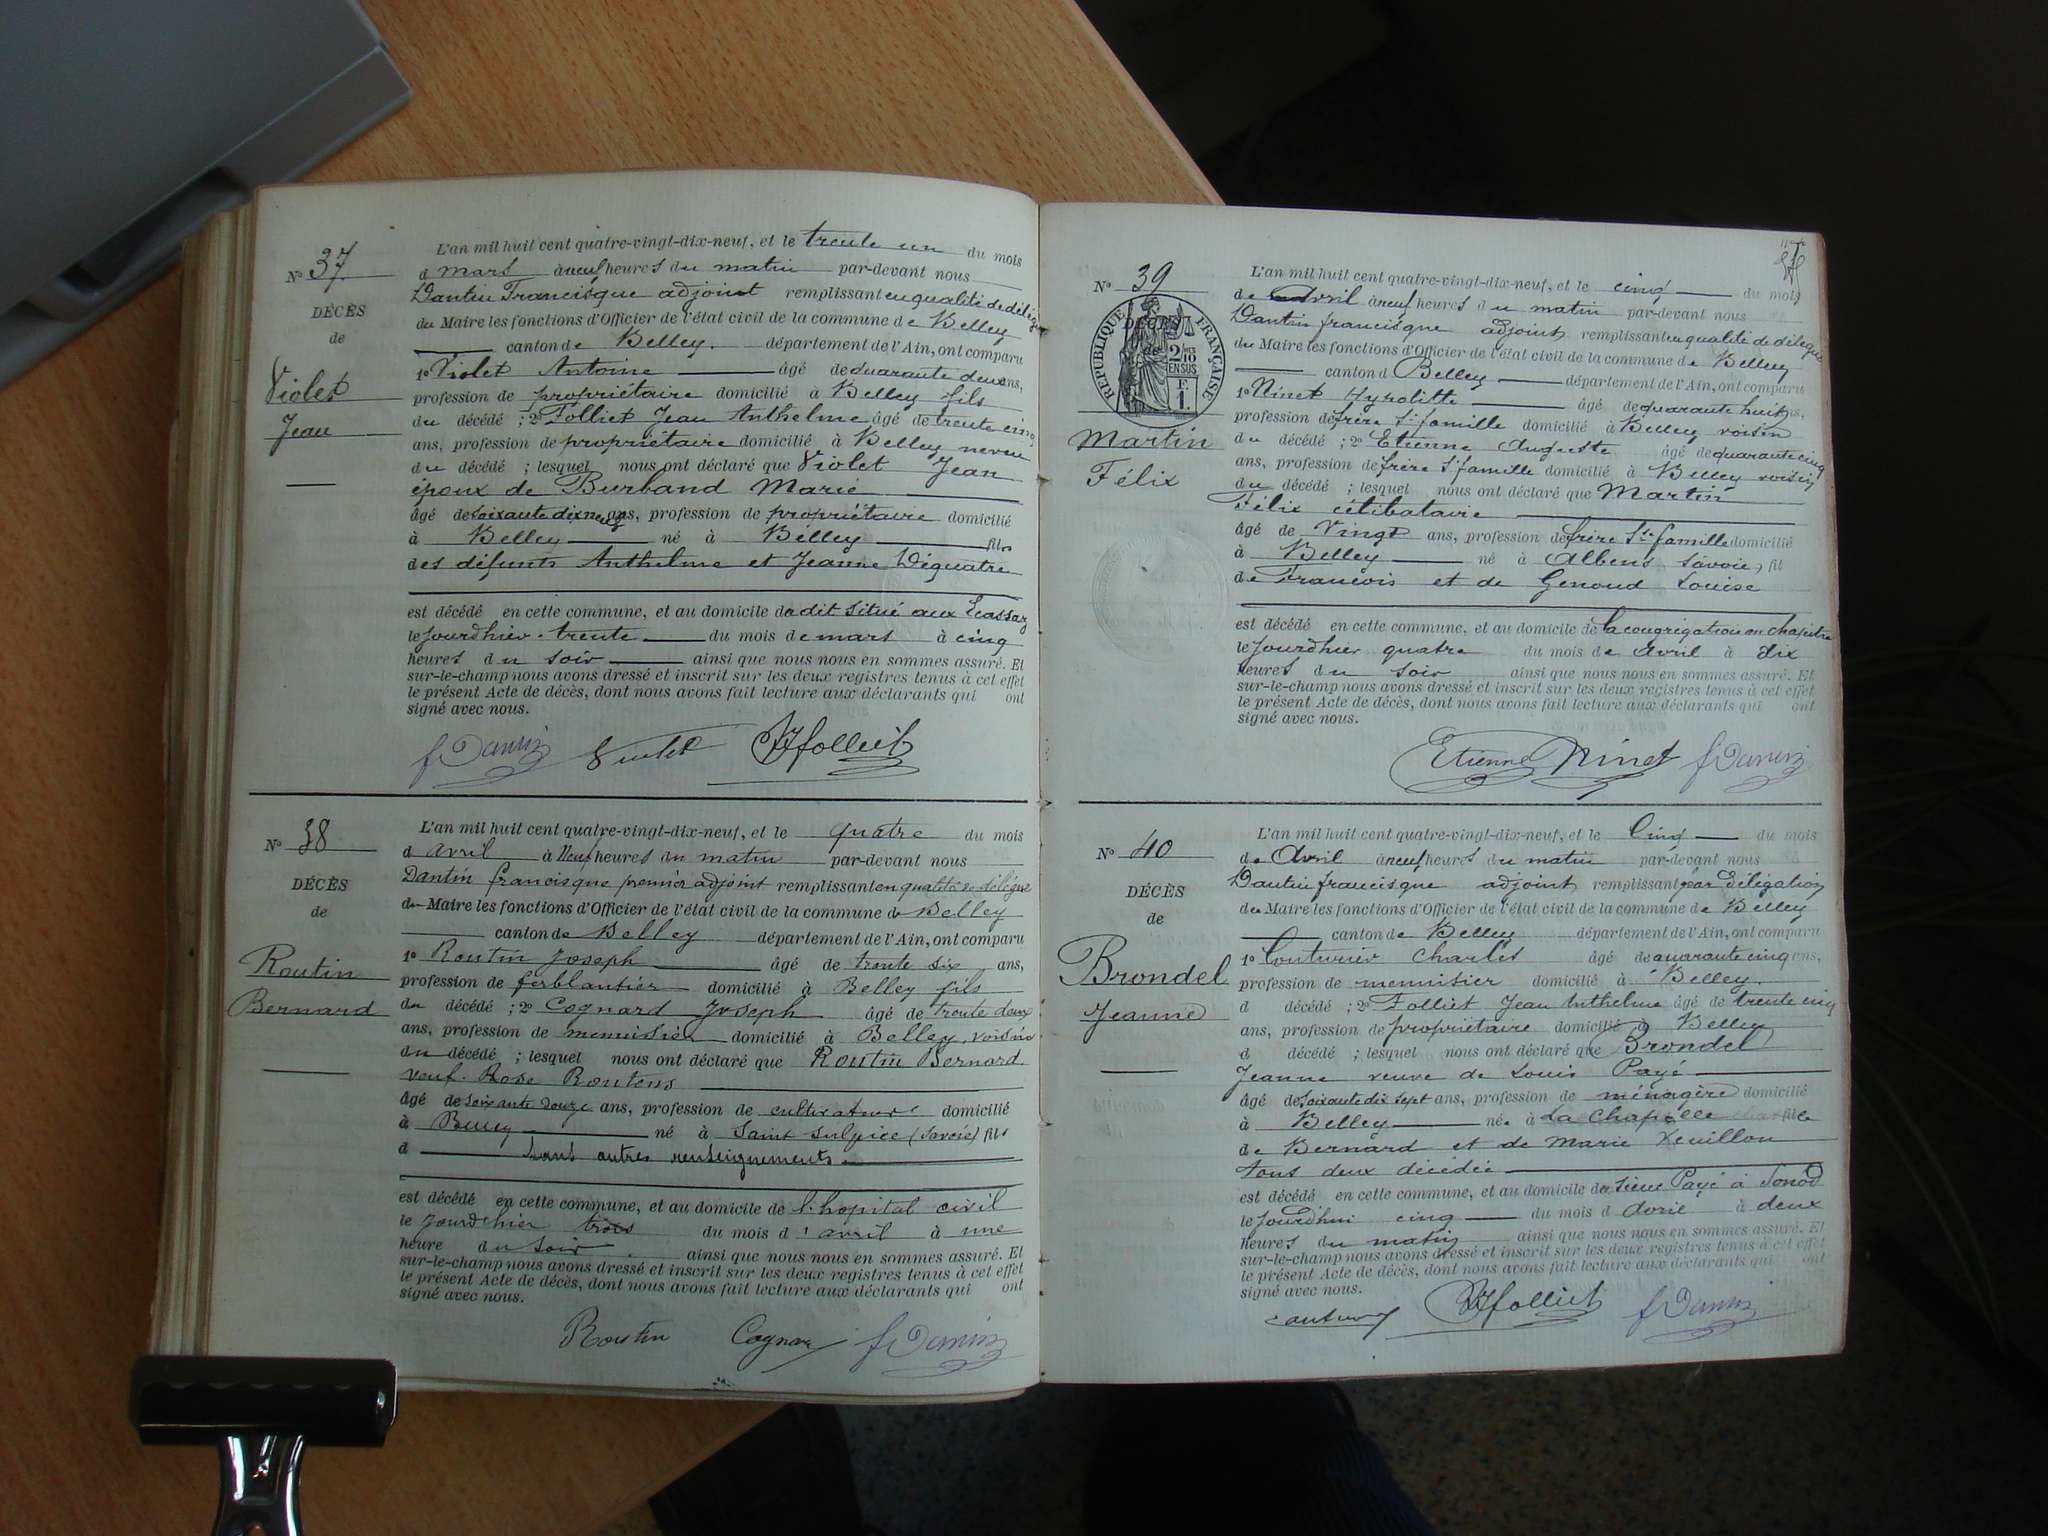 N° 37
DÉCÈS
de
Violet
Jean
L'an mil huit cent quatre-vingt-dix-neuf, et le trente un du mois
d mars à neuf heures du matin par-devant nous
Dantin Francisque adjoint remplissant en qualité de délégué
du Maire les fonctions d'Officier de l'état civil de la commune de Belley
canton de Belley. département de l'Ain, ont comparu
1° Violet Antoine âgé de quarante deux ans,
profession de propriétaire domicilié à Belley fils
du décédé ; 2° Folliet Jean Anthelme âgé de trente cinq
ans, profession de propriétaire domicilié à Belley neveu
du décédé ; lesquel nous ont déclaré que Violet Jean
époux de Burband Marie
âgé de soixante dix neuf ans, profession de propriétaire domicilié
à Belley né à Belley fils
des défunts Anthelme et Jeanne Déquatre
est décédé en cette commune, et au domicile du dit situé aux Ecassaz
le jourdhier trente du mois de mars à cinq
heures du soir ainsi que nous nous en sommes assuré. Et
sur-le-champ nous avons dressé et inscrit sur les deux registres tenus à cet effet
le présent Acte de décès, dont nous avons fait lecture aux déclarants qui ont
signé avec nous.
f Dantin Violet JA folliet
N° 38
DÉCÈS
de
Routin
Bernard
L'an mil huit cent quatre-vingt-dix-neuf, et le quatre du mois
d avril à Neuf heures du matin par-devant nous
Dantin francisque premier adjoint remplissant en qualité de délégué
du Maire les fonctions d'Officier de l'état civil de la commune de Belley
canton de Belley département de l'Ain, ont comparu
1° Routin Joseph âgé de trente six ans,
profession de ferblantier domicilié à Belley fils
du décédé ; 2° Cognard Joseph âgé de trente deux
ans, profession de menuisier domicilié à Belley, voisin
du décédé ; lesquel nous ont déclaré que Routin Bernard
veuf Rose Routens
âgé de soixante douze ans, profession de cultivateur domicilié
à Belley né à Saint Sulpice (Savoie) fils
d sans autres renseignements
est décédé en cette commune, et au domicile de l'hopital civil
le jourdhier trois du mois d'avril à une
heure du soir ainsi que nous nous en sommes assuré. Et
sur-le-champ nous avons dressé et inscrit sur les deux registres tenus à cet effet
le présent Acte de décès, dont nous avons fait lecture aux déclarants qui ont
signé avec nous.
Routin Cognar f Dantin
N° 39
DÉCÈS
de
RÉPUBLIQUE FRANÇAISE
2/10 EN SUS
F. 1.
Martin
Félix
L'an mil huit cent quatre-vingt-dix-neuf, et le cinq du mois
de avril à neuf heures du matin par-devant nous
Dantin francisque adjoint remplissant en qualité de délégué
du Maire les fonctions d'Officier de l'état civil de la commune de Belley
canton d Belley département de l'Ain, ont comparu
1° Ninet Hypolitte âgé de quarante huit ans,
profession de frère Ste famille domicilié à Belley voisin
du décédé ; 2° Etienne Auguste âgé de quarante cinq
ans, profession de frère Ste famille domicilié à Belley voisin
du décédé ; lesquel nous ont déclaré que Martin
Félix célibataire
âgé de Vingt ans, profession de frère Ste famille domicilié
à Belley né à Albens Savoie, fil
de François et de Genoud Louise
est décédé en cette commune, et au domicile de la congrégation au chapitre
le jourdhier quatre du mois de avril à dix
heures du soir ainsi que nous nous en sommes assuré. Et
sur-le-champ nous avons dressé et inscrit sur les deux registres tenus à cet effet
le présent Acte de décès, dont nous avons fait lecture aux déclarants qui ont
signé avec nous.
Etienne Ninet f Dantin
N° 40
DÉCÈS
de
Brondel
Jeanne
L'an mil huit cent quatre-vingt-dix-neuf, et le Cinq du mois
de Avril à neuf heures du matin par-devant nous
Dantin francisque adjoint remplissant par délégation
du Maire les fonctions d'Officier de l'état civil de la commune de Belley
canton de Belley département de l'Ain, ont comparu
1° Couturier Charles âgé de quarante cinq ans,
profession de menuisier domicilié à Belley.
d décédé ; 2° Folliet Jean Anthelme âgé de trente cinq
ans, profession de propriétaire domicilié à Belley
d décédé ; lesquel nous ont déclaré que Brondel
Jeanne veuve de Louis Payé
âgé de soixante dix sept ans, profession de ménagère domicilié
à Belley née à La Chapelle fille
de Bernard et de Marie
tous deux décédés
est décédé en cette commune, et au domicile de sieur Payé à Sonod
le jourdhui cinq du mois d Avril à deux
heures du matin ainsi que nous nous en sommes assuré. Et
sur-le-champ nous avons dressé et inscrit sur les deux registres tenus à cet effet
le présent Acte de décès, dont nous avons fait lecture aux déclarants qui ont
signé avec nous.
JA folliet f Dantin